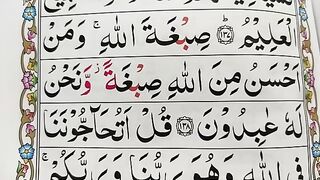 الْعَلِيْمُ ﴿١٣٧﴾ صِبْغَةَ اللّٰهِ ۚ وَمَنْ
اَحْسَنُ مِنَ اللّٰهِ صِبْغَةً ۫ وَّنَحْنُ
لَهٗ عٰبِدُوْنَ ﴿١٣٨﴾ قُلْ اَتُحَآجُّوْنَنَا
فِى اللّٰهِ وَهُوَ رَبُّنَا وَرَبُّكُمْ ۚ